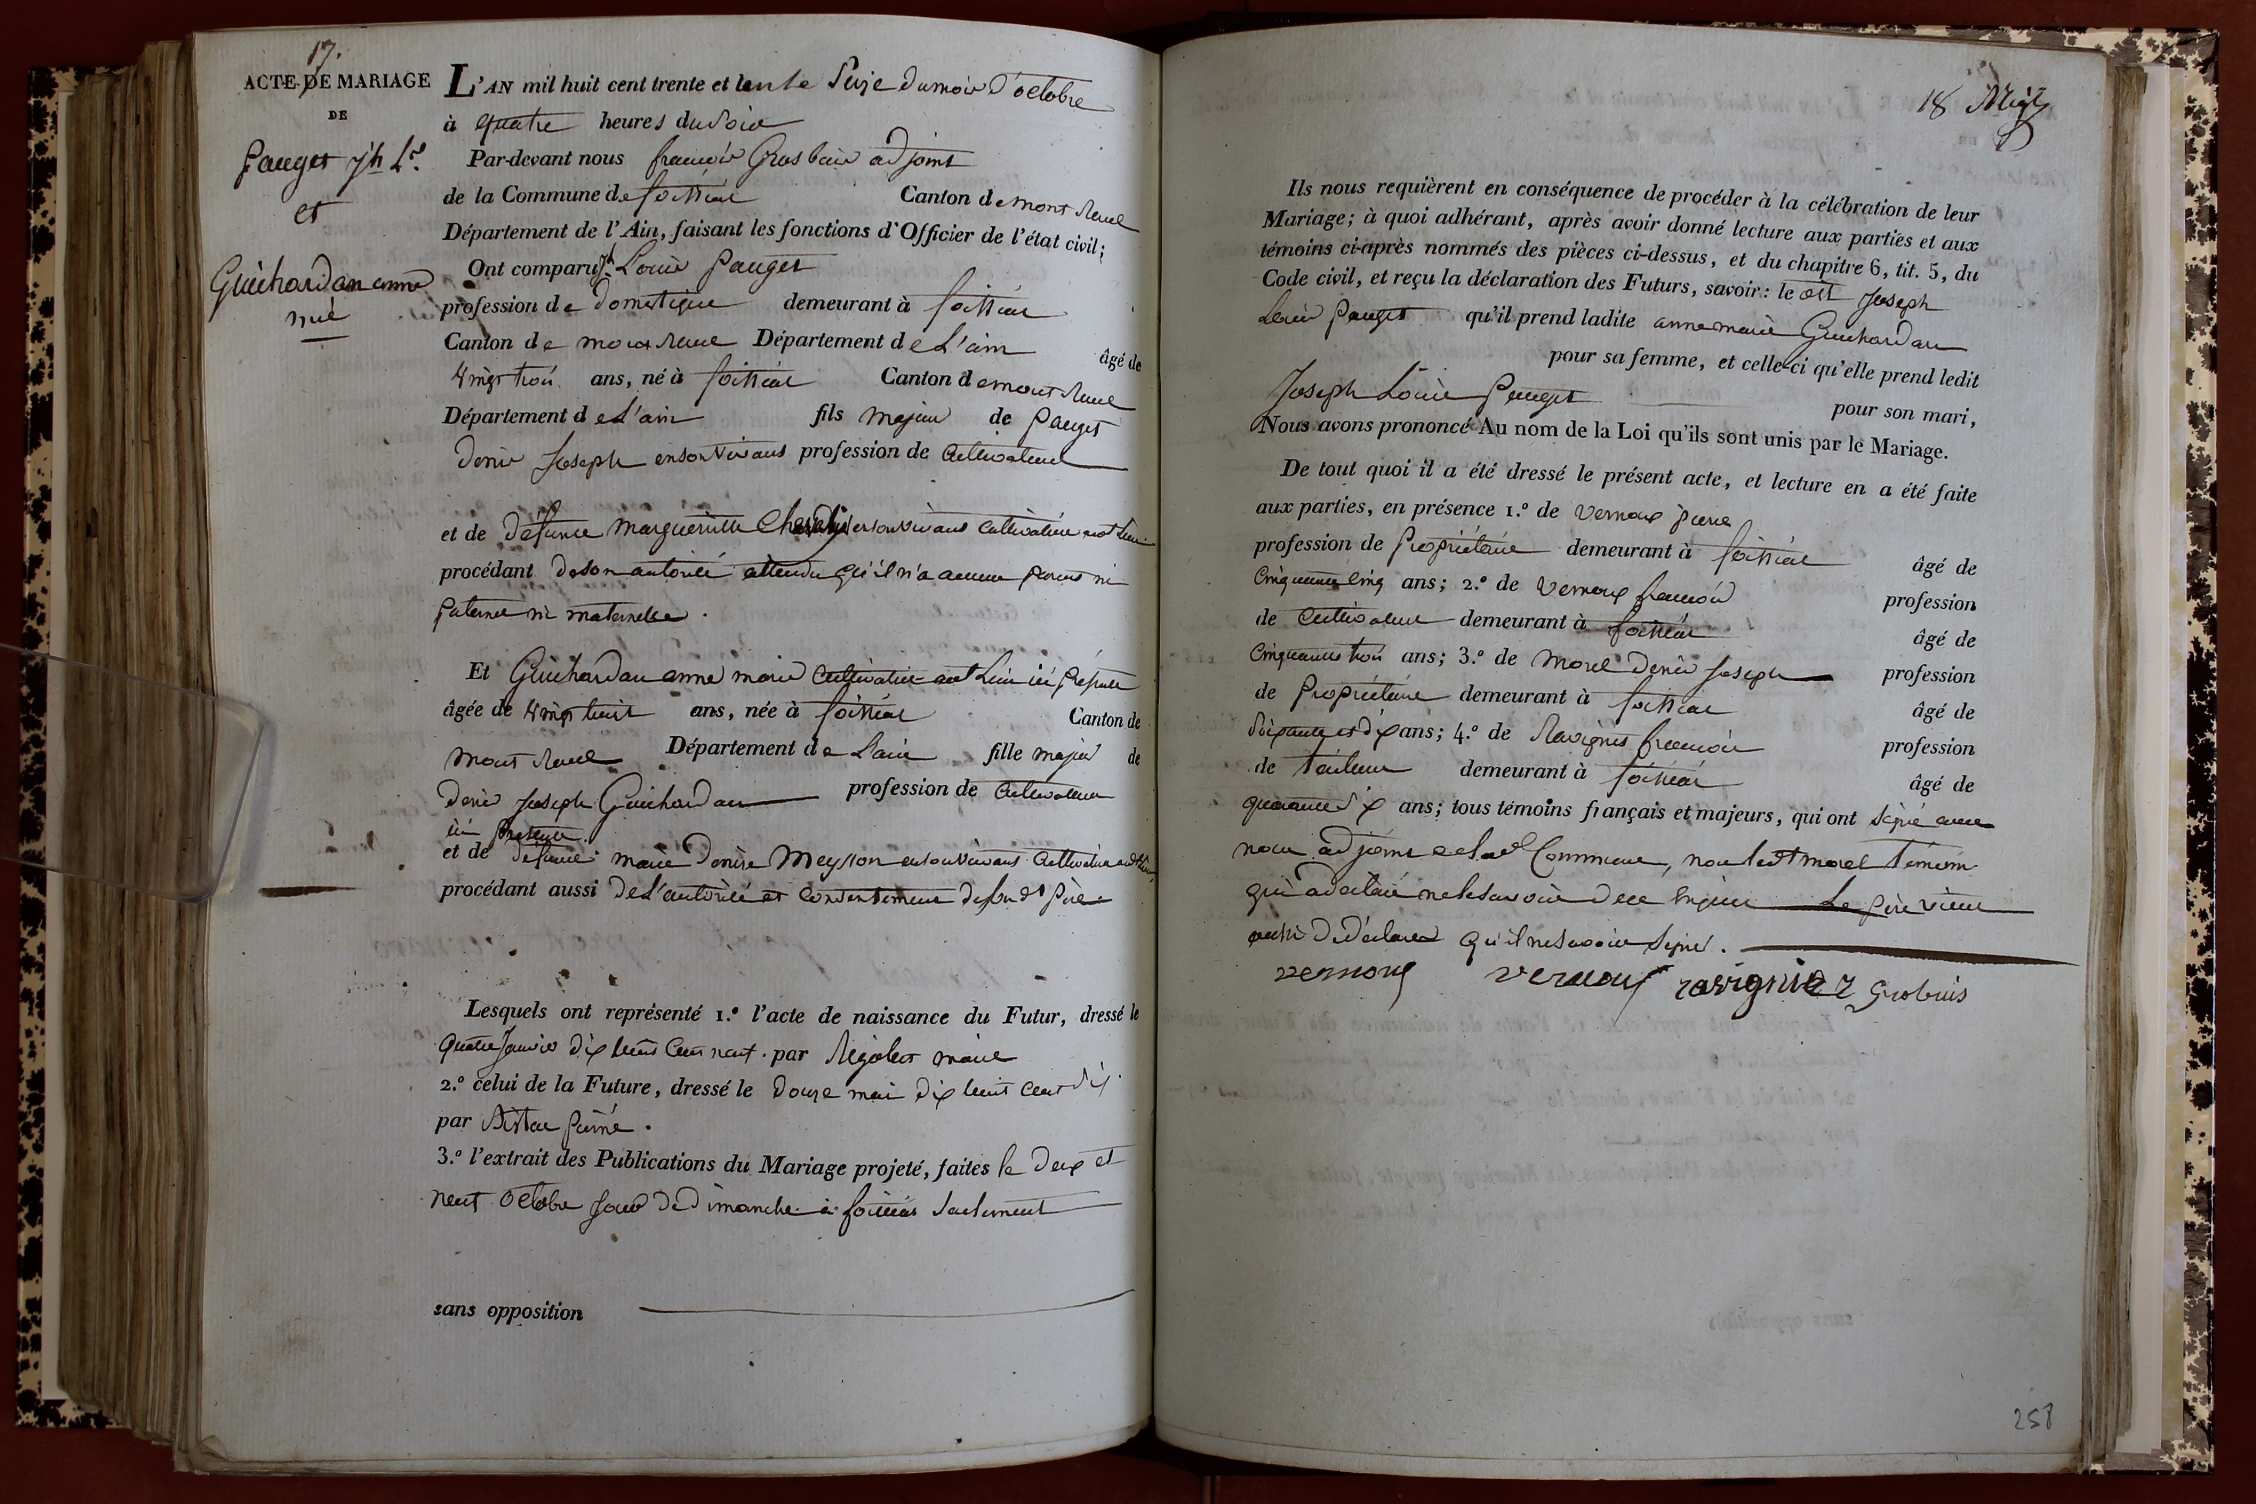 17.
ACTE DE MARIAGE
DE
Pauget jh Ls
et
Guichardan anne
mie
L'AN mil huit cent trente et le seize du mois d'octobre
à quatre heures du soir
Par-devant nous françois Grosbuis adjoint
de la Commune de foissiat Canton de mont Revel
Département de l'Ain, faisant les fonctions d'Officier de l'état civil;
Ont comparu Jh Louis Pauget
profession de domestique demeurant à foissiat
Canton de mont Revel Département de L'ain âgé de
vingt trois ans, né à foissiat Canton de mont Revel
Département de L'ain fils majeur de Pauget
denis Joseph en son vivant profession de Cultivateur
et de défunte margueritte en son vivant Cultivatrice
procédant de son autorité attendu qu'il n'a aucun parent ni
paternel ni maternelle.
Et Guichardan anne marie Cultivatrice audt Lieu ici présente
âgée de vingt huit ans, née à foissiat Canton de
mont Revel Département de L'ain fille majeur de
denis Joseph Guichardan profession de Cultivateur
ici présent
et de défunte marie denise Meysson en son vivant Cultivatrice audt Lieu
procédant aussi de L'autorité et Consentement de sondt père.
Lesquels ont représenté 1.º l'acte de naissance du Futur, dressé le
quatre Janvier dix huit cent neuf. par maire
2.º celui de la Future, dressé le douze mai dix huit cent dix.
par
3.º l'extrait des Publications du Mariage projeté, faites le deux et
neuf octobre jour de dimanche à foissiat seulement
sans opposition
18
Ils nous requièrent en conséquence de procéder à la célébration de leur
Mariage; à quoi adhérant, après avoir donné lecture aux parties et aux
témoins ci-après nommés des pièces ci-dessus, et du chapitre 6, tit. 5, du
Code civil, et reçu la déclaration des Futurs, savoir: le dit Joseph
Louis Pauget qu'il prend ladite anne marie Guichardan
pour sa femme, et celle-ci qu'elle prend ledit
Joseph Louis Pauget pour son mari,
Nous avons prononcé Au nom de la Loi qu'ils sont unis par le Mariage.
De tout quoi il a été dressé le présent acte, et lecture en a été faite
aux parties, en présence 1.º de Vernoux pierre
profession de Propriétaire demeurant à foissiat âgé de
Cinquante Cinq ans; 2.º de Vernoux francois profession
de Cultivateur demeurant à foissiat âgé de
Cinquante trois ans; 3.º de Morel denis Joseph profession
de Propriétaire demeurant à foissiat âgé de
soixante et dix ans; 4.º de Ravignet francois profession
de tailleur demeurant à foissiat âgé de
quarante six ans; tous témoins français et majeurs, qui ont signé avec
nous adjoint de lad Commune, non ledt morel témoin
qui a déclaré ne le savoir de ce enquis Le père
aussi déclaré qu'il ne savoir signer.
vernoux vernoux ravignier Grosbuis
258